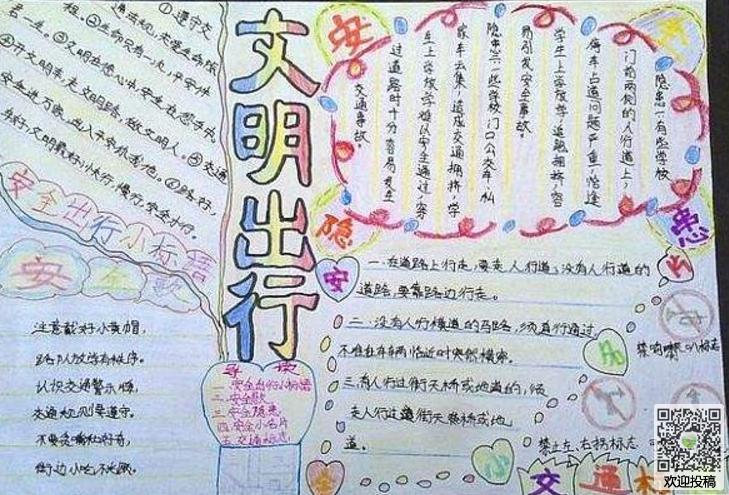 ① 遵守交
通法规,
②生命只有一次,平安伴
君一生。③文明在您心中,安全在您手中。
④开文明车,走文明路,做文明人。⑤交通
安全进万家,
⑥
安全出行小标语
安全歌
注意戴好小黄帽,
路队放学有秩序。
认识交通警示牌,
交通规则早遵守。
街边小吃不光顾。
文明出行
导读
一.安全出行小标语
二.安全歌
三.安全隐患
四.安全小名片
五.交通标志
安全隐患
隐患一:有些学校
门前两侧的人行道上,
停车占道问题严重,恰逢
学生上学放学,道路拥挤,容
易引发安全事故。
隐患二:些学校门口公交车、私
家车云集,造成交通拥挤,学
生上学放学难以安全通过,穿
过道路时十分容易发生
交通事故。
一.在道路上行走,要走人行道;没有人行道的
道路,要靠路边行走。
二.没有人行横道的马路,须直行通过,
不准在车辆临近时突然横穿。
三.有人行过街天桥或地道的,须
走人行过街天桥或地
道。
安全小名片
禁鸣喇叭标志
禁止左、右拐标志
交通
欢迎投稿